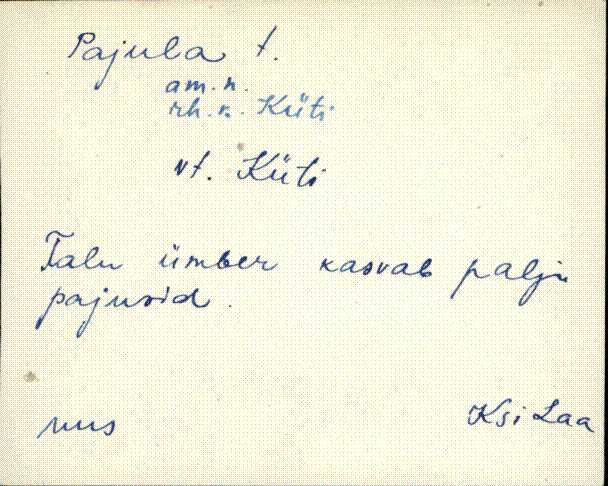 Pajula t.
am. n.
rh. n. Küti
vt. Küti
Talu ümber kasvab palju
pajusid.
nus
Ksi Laa